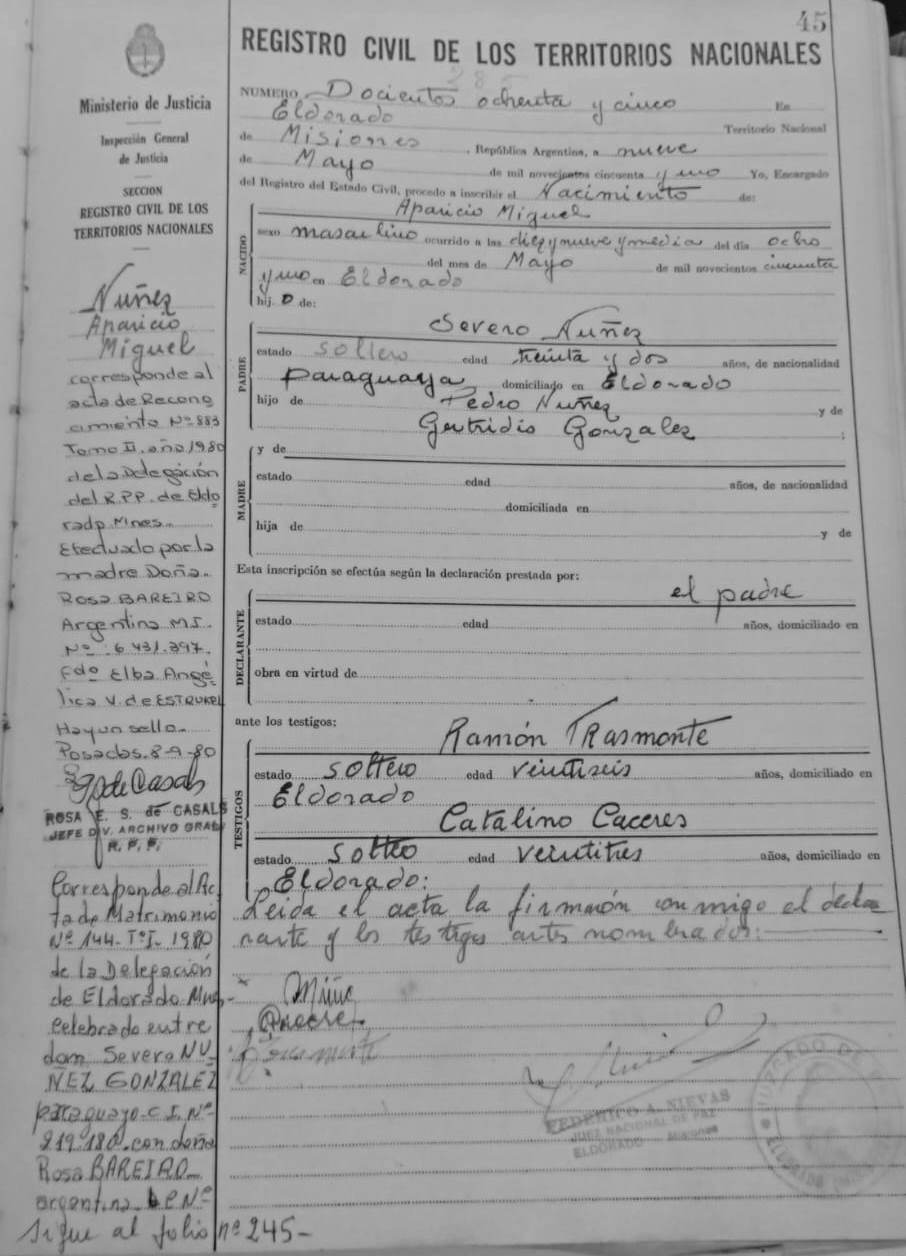 45
REGISTRO CIVIL DE LOS TERRITORIOS NACIONALES
Ministerio de Justicia
Inspección General
de Justicia
SECCION
REGISTRO CIVIL DE LOS
TERRITORIOS NACIONALES
Nuñez
Aparicio
Miguel
corresponde al
acta de Recono
cimiento Nº 883
Tomo II, año 1980
de la Delegación
del R.P.P. de Eldo
rado, Mnes.
Efectuado por la
madre Doña.
Rosa BAREIRO
Argentina M.I.
Nº 6.431.397.
Fdo Elba Angé
lica V. de ESTRUKEL
Hay un sello.
Posadas. 8-9-80
ROSA E. S. de CASALS
JEFE DIV. ARCHIVO GRAL
R. P. P.
Corresponde al Ac
ta de Matrimonio
Nº 144. Tº I. 1980
de la Delegación
de Eldorado. Mnes-
celebrado entre
don Severo NU
ÑEZ GONZALEZ
paraguayo C.I. Nº
219.180. con doña
Rosa BAREIRO
argentina Nº
sigue al folio nº 245-
285
NUMERO Docientos ochenta y cinco En
Eldorado Territorio Nacional
de Misiones, República Argentina, a nueve
de Mayo de mil novecientos cincuenta y uno Yo, Encargado
del Registro del Estado Civil, procedo a inscribir el Nacimiento de:
NACIDO
Aparicio Miguel
sexo masculino ocurrido a las diez y nueve y media del día ocho
del mes de Mayo de mil novecientos cincuenta
y uno en Eldorado
hijo de:
PADRE
Severo Nuñez
estado soltero edad treinta y dos años, de nacionalidad
Paraguaya domiciliado en Eldorado
hijo de Pedro Nuñez y de
Gertridis Gonzalez ;
MADRE
y de
estado edad años, de nacionalidad
domiciliada en
hija de y de
Esta inscripción se efectúa según la declaración prestada por:
DECLARANTE
el padre
estado edad años, domiciliado en
obra en virtud de
ante los testigos:
TESTIGOS
Ramón Trasmonte
estado soltero edad veintiseis años, domiciliado en
Eldorado
Catalino Caceres
estado solteo edad veintitres años, domiciliado en
Eldorado:
Leida el acta la firmarón con migo el decla
rante y los testigos antes nombrados:
FEDERICO A. NIEVAS
JUEZ NACIONAL DE PAZ
ELDORADO Misiones
JUZGADO DE
ELDORADO